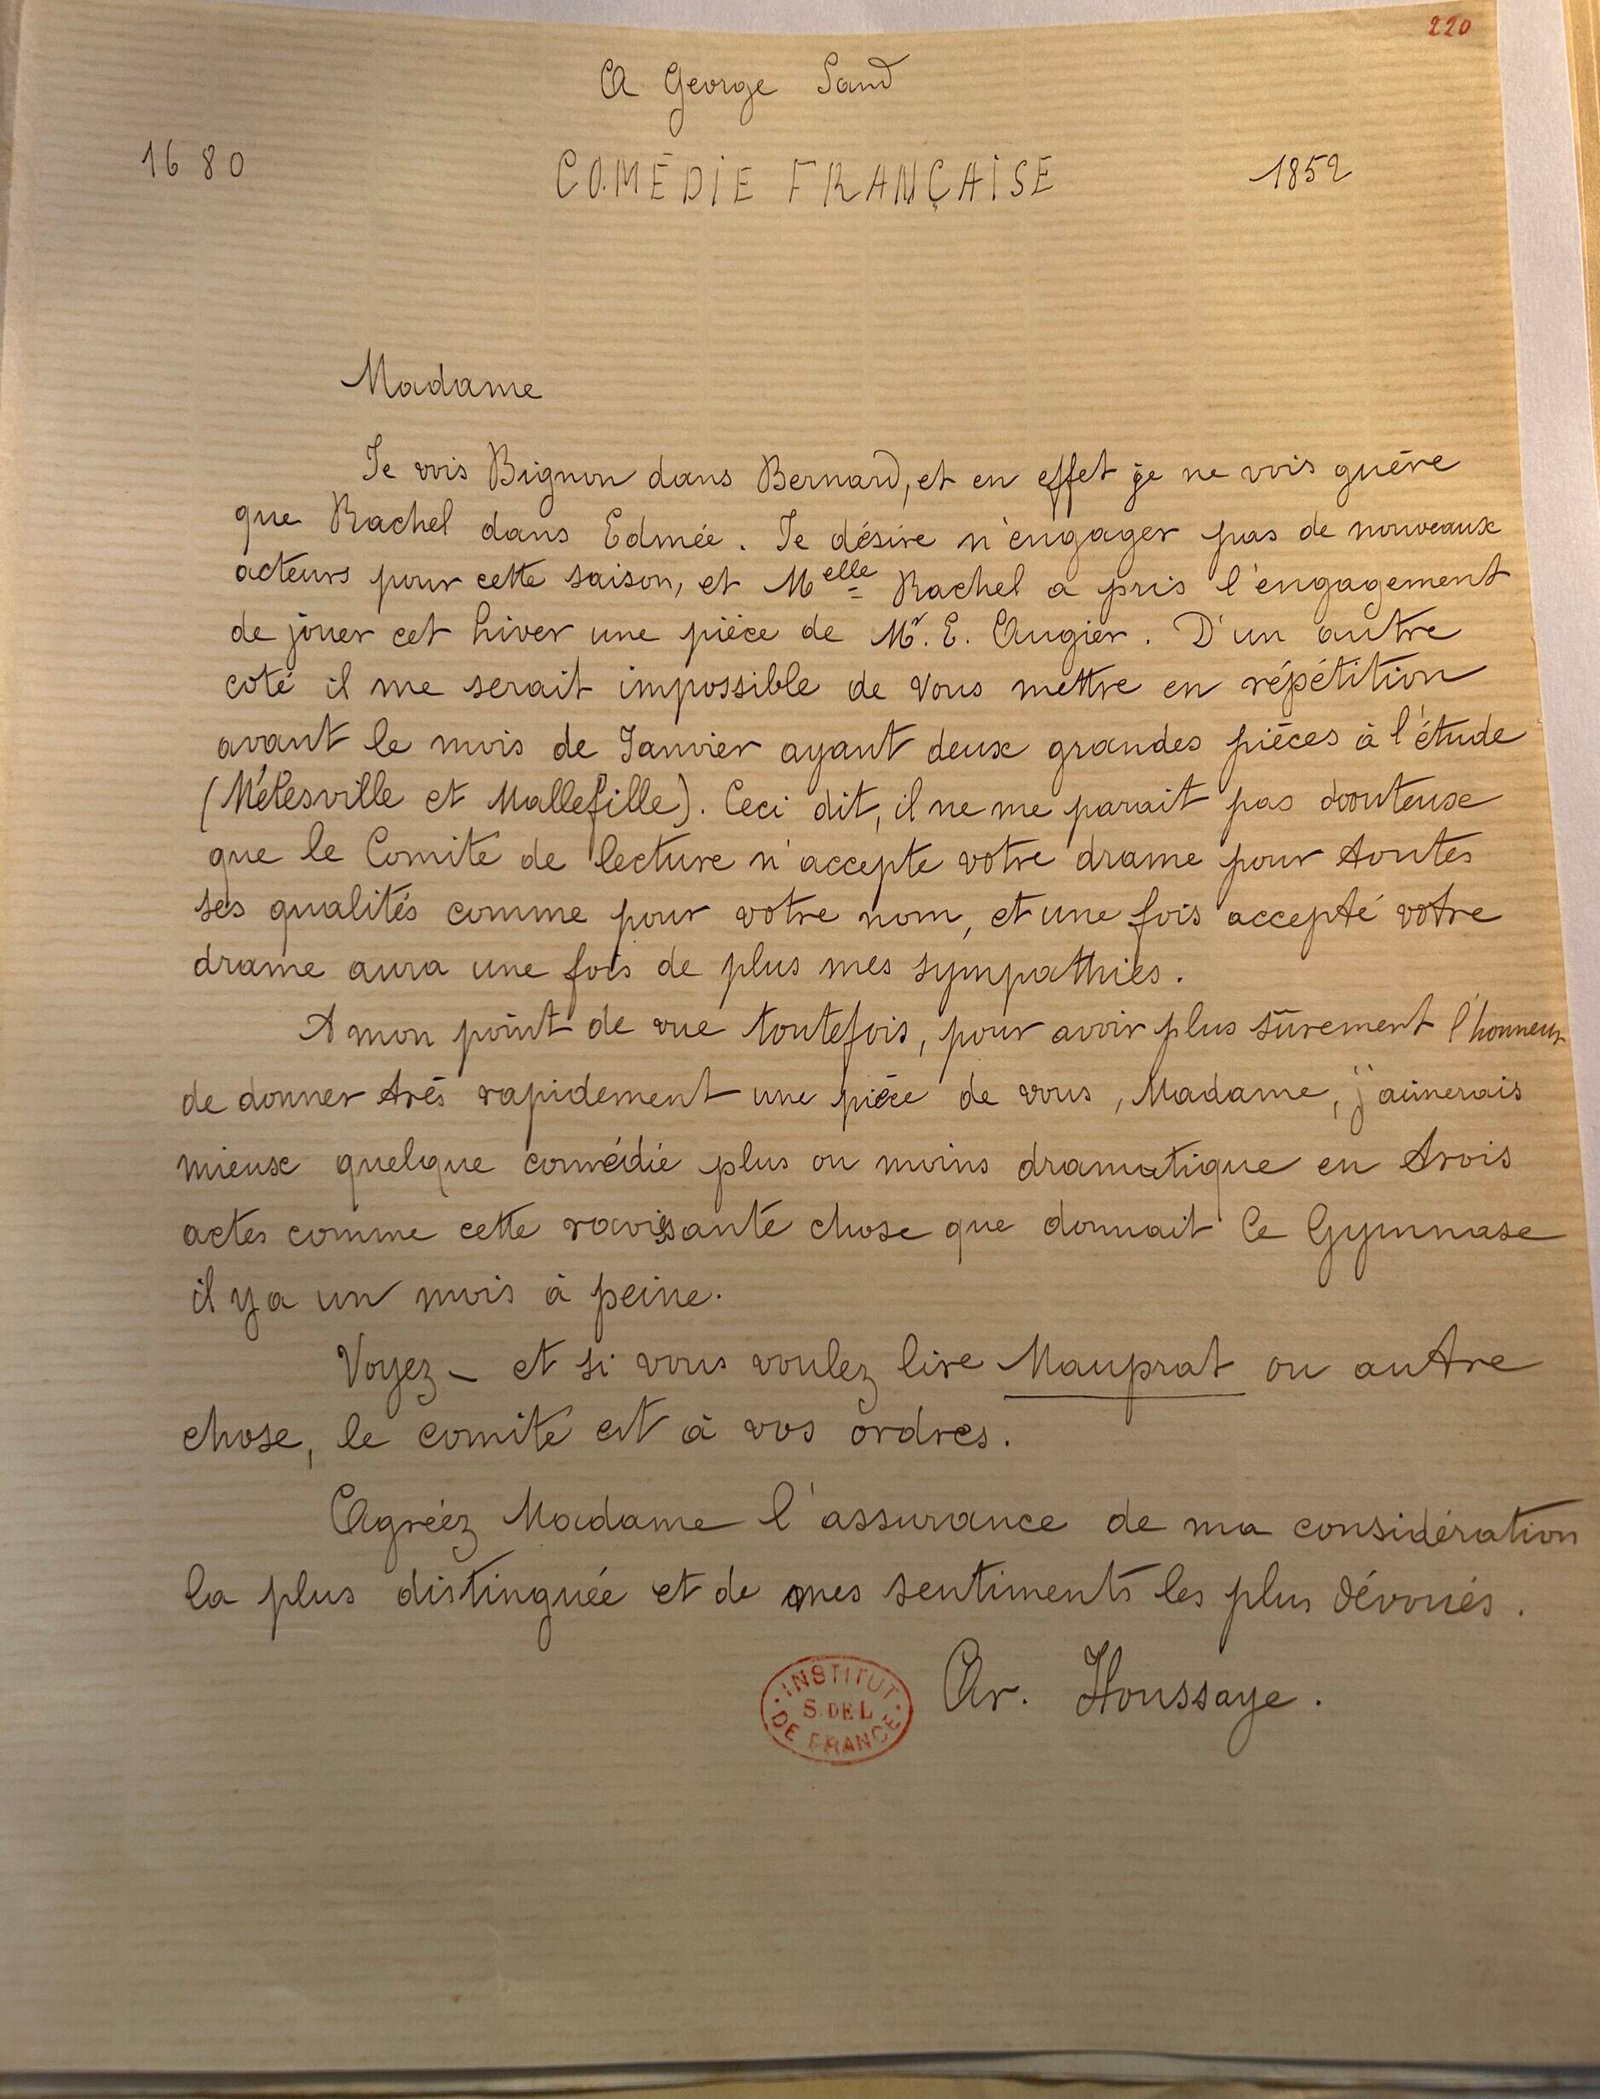 220
A George Sand
1680 COMÉDIE FRANÇAISE 1852
Madame
Je vois Bignon dans Bernard, et en effet je ne vois guère
que Rachel dans Edmée. Je désire n'engager pas de nouveaux
acteurs pour cette saison, et Melle Rachel a pris l'engagement
de jouer cet hiver une pièce de Mr. E. Augier. D'un autre
coté il me serait impossible de vous mettre en répétition
avant le mois de Janvier ayant deux grandes pièces à l'étude
(Mélesville et Mallefille). Ceci dit, il ne me parait pas douteux
que le Comité de lecture n'accepte votre drame pour toutes
ses qualités comme pour votre nom, et une fois accepté votre
drame aura une fois de plus mes sympathies.
A mon point de vue toutefois, pour avoir plus sûrement l'honneur
de donner très rapidement une pièce de vous, Madame, j'aimerais
mieux quelque comédie plus ou moins dramatique en trois
actes comme cette ravissante chose que donnait le Gymnase
il y a un mois à peine.
Voyez – et si vous voulez lire Mauprat ou autre
chose, le comité est à vos ordres.
Agréez Madame l'assurance de ma considération
la plus distinguée et de mes sentiments les plus dévoués.
Ar. Houssaye.
INSTITUT
S. DE L
DE FRANCE